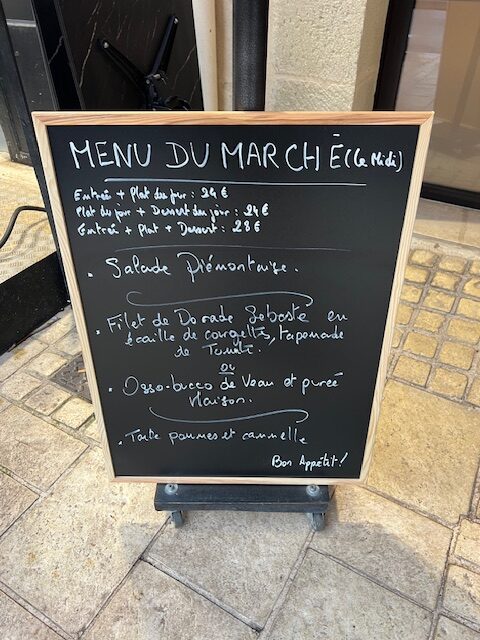 MENU DU MARCHÉ (Le Midi)
Entrée + Plat du jour : 24 €
Plat du jour + Dessert du jour : 24 €
Entrée + Plat + Dessert : 28 €
. Salade Piémontaise.
. Filet de Dorade Sebaste en
écaille de courgettes, tapenade
de Tomate.
ou
. Osso-bucco de Veau et purée
Maison.
. Tarte pommes et cannelle
Bon Appétit !